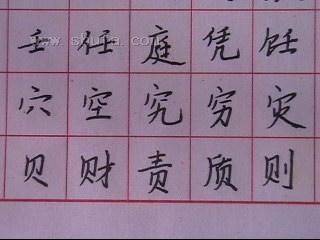 壬 任 庭 凭 饪
穴 空 究 穷 灾
贝 财 责 质 则